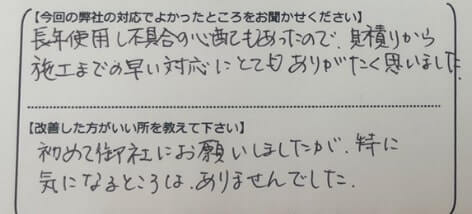 【今回の弊社の対応でよかったところをお聞かせください】
長年使用し不具合の心配もあったので、見積りから
施工までの早い対応にとてもありがたく思いました
【改善した方がいい所を教えて下さい】
初めて御社にお願いしましたが、特に
気になるところは、ありませんでした.